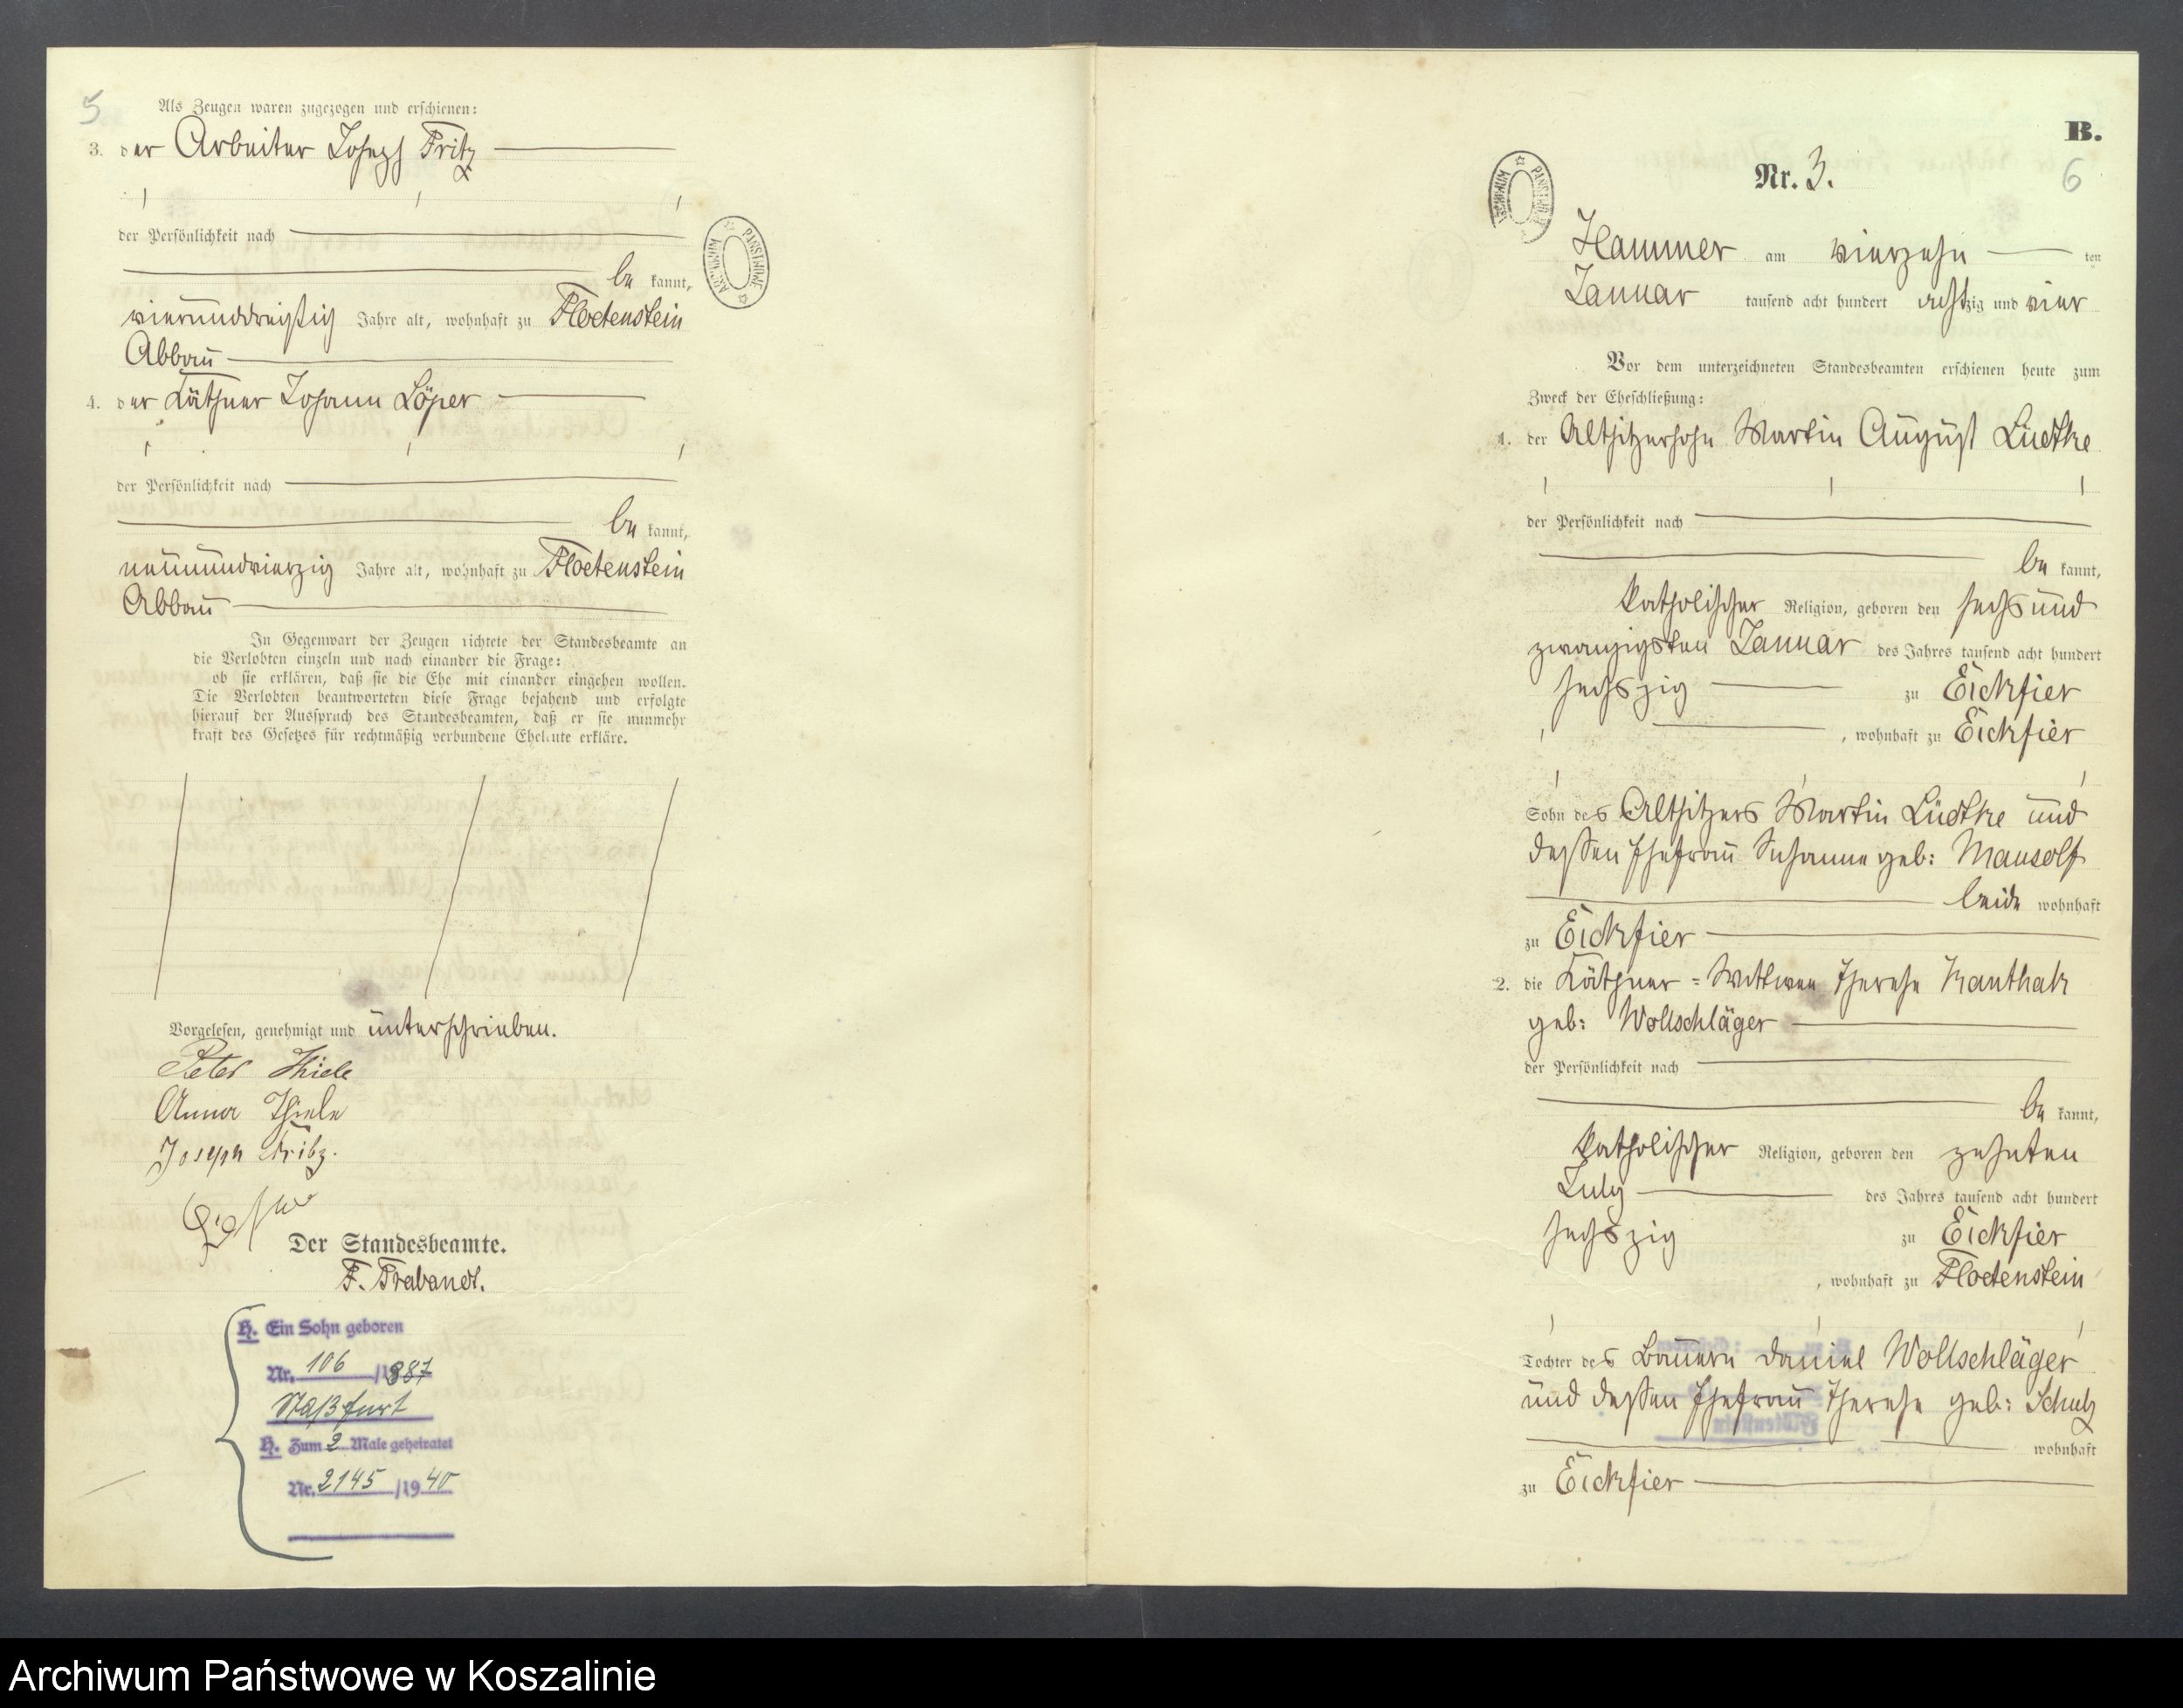 5
Als Zeugen waren zugezogen und erschienen:
3. der Arbeiter Joseph Fritz
der Persönlichkeit nach
be kannt,
vierunddreißig Jahre alt, wohnhaft zu Floetenstein
Abbau
4. der Käthner Johann Löper
der Persönlichkeit nach
be kannt,
neunundvierzig Jahre alt, wohnhaft zu Floetenstein
Abbau
In Gegenwart der Zeugen richtete der Standesbeamte an
die Verlobten einzeln und nach einander die Frage:
ob sie erklären, daß sie die Ehe mit einander eingehen wollen.
Die Verlobten beantworteten diese Frage bejahend und erfolgte
hierauf der Ausspruch des Standesbeamten, daß er sie nunmehr
kraft des Gesetzes für rechtmäßig verbundene Eheleute erkläre.
Vorgelesen, genehmigt und unterschrieben.
Peter Thiele
Anna Thiele
Joseph Fritz.
Der Standesbeamte.
F. Trabandt.
H. Ein Sohn geboren
Nr. 106 /1887
Staßfurt
H. Zum 2 Male geheiratet
Nr. 2145 /1940
ARCHIWUM PAŃSTWOWE
B.
6
Nr. 3.
ARCHIWUM PAŃSTWOWE
Hammer am vierzehn ten
Januar tausend acht hundert achtzig und vier
Vor dem unterzeichneten Standesbeamten erschienen heute zum
Zweck der Eheschließung:
1. der Altsitzersohn Martin August Lüdtke
der Persönlichkeit nach
be kannt,
katholischer Religion, geboren den sechsund
zwanzigsten Januar des Jahres tausend acht hundert
sechszig zu Eickfier
, wohnhaft zu Eickfier
Sohn des Altsitzers Martin Lüdtke und
dessen Ehefrau Susanne geb: Mausolf
beide wohnhaft
zu Eickfier
2. die Käthner = Wittwe Therese Kanthak
geb: Wollschläger
der Persönlichkeit nach
be kannt,
katholischer Religion, geboren den zehnten
July des Jahres tausend acht hundert
sechszig zu Eickfier
, wohnhaft zu Floetenstein
Tochter des Bauern Daniel Wollschläger
und dessen Ehefrau Therese geb: Schulz
wohnhaft
zu Eickfier
Archiwum Państwowe w Koszalinie